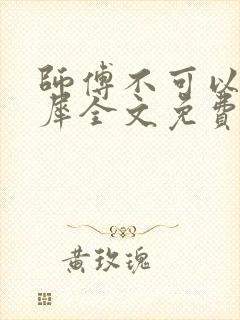 師傅不可以
犀全文免費
黃玫瑰